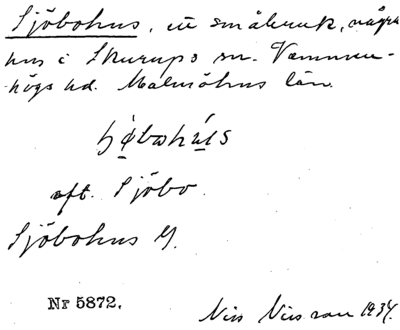 Sjöbohus, ett småbruk, några
hus i Skurups sn. Vemmen-
högs hd. Malmöhus län.
oft. Sjöbo.
Sjöbohus G.
Nr 5872.
Nils Nilsson 1934.